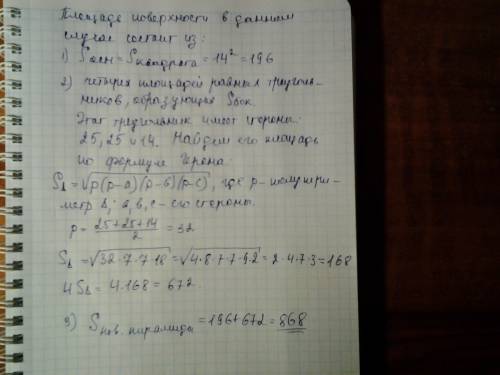 Площадь поверхности в данном
случае состоит из:
1) Sосн = Sквадрата = 14² = 196
2) четырех площадей равных треуголь-
ников, образующих Sбок.
Этот треугольник имеет стороны:
25, 25 и 14. Найдем его площадь
по формуле Герона:
S△ = √p(p-a)(p-b)(p-c), где p - полупери-
метр △; a, b, c - его стороны.
p = (25+25+14)/2 = 32
S△ = √32·7·7·18 = √4·8·7·7·9·2 = 2·4·7·3 = 168
4S△ = 4·168 = 672.
3) Sпов. пирамиды = 196+672 = 868